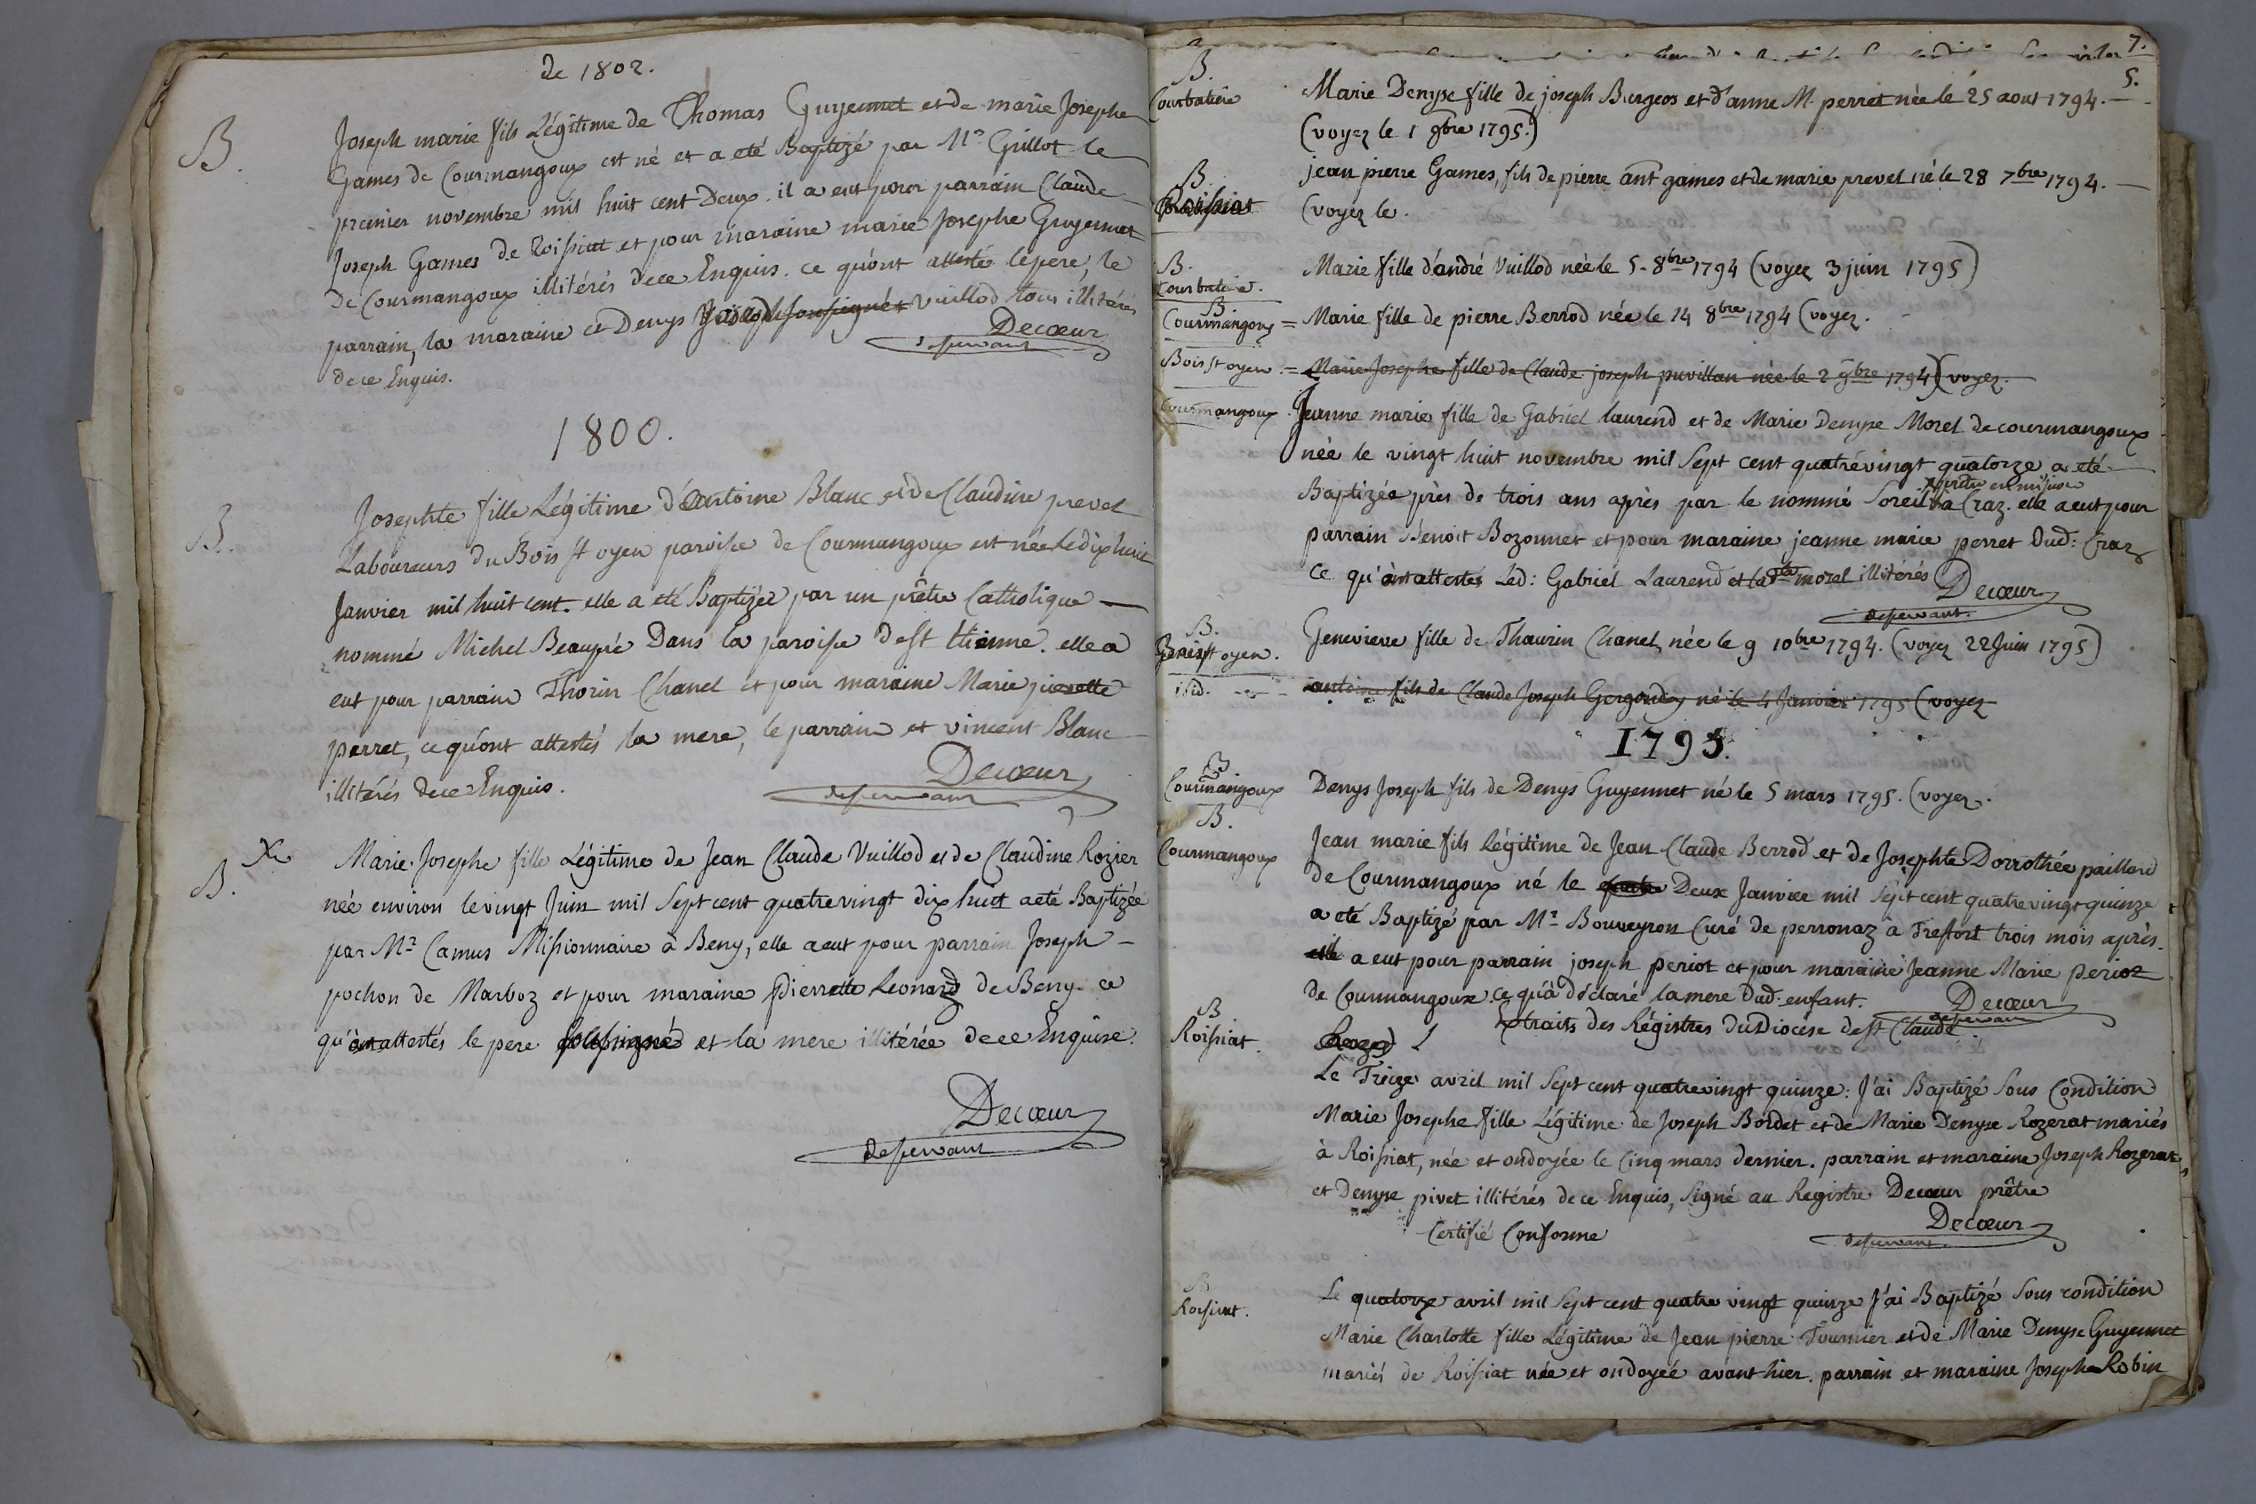 de 1802.
B.
Joseph marie fils Légitime de Thomas Guyennet et de marie Josephe
Games de Courmangoux est né et a eté Baptizé par Mr Grillot le
premier novembre mil huit cent Deux. il a eut pour parrain Claude
Joseph Games de Roissiat et pour maraine marie Josephe Guyennet
De Courmangoux illitérés dece Enquis. ce qu'ont attesté le pere, le
parrain, la maraine et Denys Vuillod tous illitérés
dece Enquis.
Decœur
desservant
1800.
B.
Josephte fille Légitime d'antoine Blanc et de Claudine prevel
Laboureurs du Bois st oyen paroisse de Courmangoux est née le dix huit
Janvier mil huit cent. elle a eté Baptizée par un prêtre Catholique
nommé Michel Beaupré Dans la paroisse de st Etienne. elle a
eut pour parrain Thorin Chanel et pour maraine Marie pierrette
perret, ce qu'ont attestés la mere, le parrain et vincent Blanc
illitérés dece Enquis.
Decœur
desservant
B.
Marie Josephe fille Légitime de Jean Claude Vuillod et de Claudine Rozier
née environ le vingt Juin mil Sept cent quatre vingt dix huit a eté Baptizée
par Mr Camus Missionnaire à Beny, elle a eut pour parrain Joseph
pochon de Marboz et pour maraine pierrette Leonard de Beny. ce
qu'ont attestés le pere et la mere illitérée dece Enquise.
Decœur
desservant
7.
5.
B.
Courbatiere
Marie Denyse fille de joseph Burgeos et d'anne M. perret née le 25 aout 1794.
(voyez le 1 9bre 1795.)
B.
Roissiat
jean pierre Games, fils de pierre ant games et de marie prevel né le 28 7bre 1794.
(voyez le.
B.
Courbatiere.
Marie fille d'andré Vuillod née le 5. 8bre 1794 (voyez 3 juin 1795)
B.
Courmangoux = Marie fille de pierre Berrod née le 14 8bre 1794 (voyez.
Bois st oyen. = Marie Josephe fille de Claude joseph puvillan née le 2 9bre 1794) (voyez.
Courmangoux. Jeanne marie fille de Gabriel laurend et de Marie Denyse Morel de courmangoux
née le vingt huit novembre mil Sept cent quatrevingt quatorze a eté
Baptizée près de trois ans après par le nommé Soreil a Craz. elle a eut pour
parrain Benoit Bozonnet et pour maraine jeanne marie perret Dud: Craz
ce qu'ont attestés Led: Gabriel Laurend et lad morel illitérés
Decœur
desservant.
B.
Bois st oyen.
Genevieve fille de Thaurin Chanel née le 9 10bre 1794. (voyez 22 Juin 1795)
ibid. antoine fils de Claude Joseph Gergondey né le 4 Janvier 1795 (voyez
1795.
B
Courmangoux
Denys Joseph fils de Denys Guyennet né le 5 mars 1795. (voyez.
B.
Courmangoux
Jean marie fils Légitime de Jean Claude Berrod et de Josephte Dorrothée paillard
de Courmangoux né le Deux Janvier mil Sept cent quatre vingt quinze
a eté Baptizé par Mr Bouveyron Curé de perronaz à Treffort trois mois après.
a eut pour parrain joseph periot et pour maraine Jeanne Marie perioz
de Courmangoux ce qu'à déclaré la mere Dud. enfant.
Decœur
desservant
Extraits des Régistres Du Diocese de st Claude.
B
Roissiat.
Le Treize avril mil Sept cent quatrevingt quinze: J'ai Baptizé Sous Condition
Marie Josephe fille Légitime de Joseph Bordet et de Marie Denyse Rozerat mariés
à Roissiat, née et ondoyée le Cinq mars dernier. parrain et maraine Joseph Rozerat
et Denyse pivet illitérés dece Enquis, Signé au Registre Decœur prêtre
Certifié Conforme
Decœur
desservant.
B
Roissiat.
Le quatorze avril mil Sept cent quatre vingt quinze J'ai Baptizé Sous condition
Marie Charlotte fille Légitime de Jean pierre Tournier et de Marie Denyse Guyennet
mariés de Roissiat née et ondoyée avant hier. parrain et maraine Josephe Robin